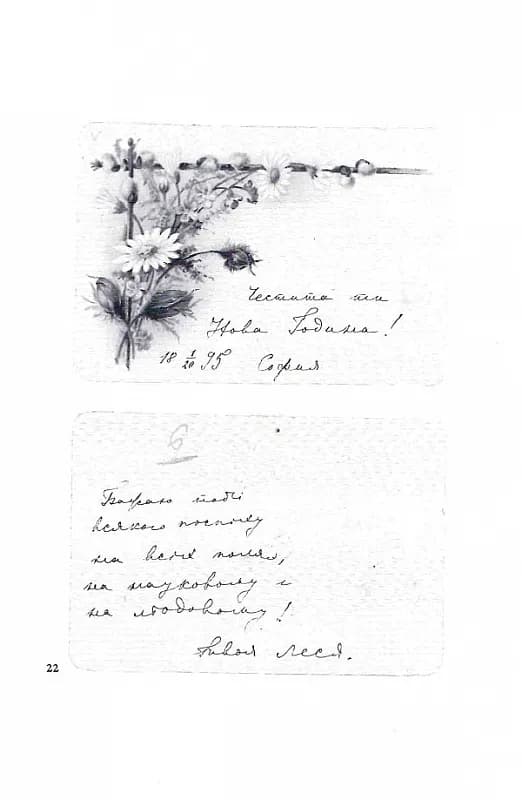 Честита ти
Нова Година!
18 1/20 95 София
6
Бажаю тобі
всякого поспіху
на всіх полях,
на науковому і
на людовому!
Твоя Леся.
22